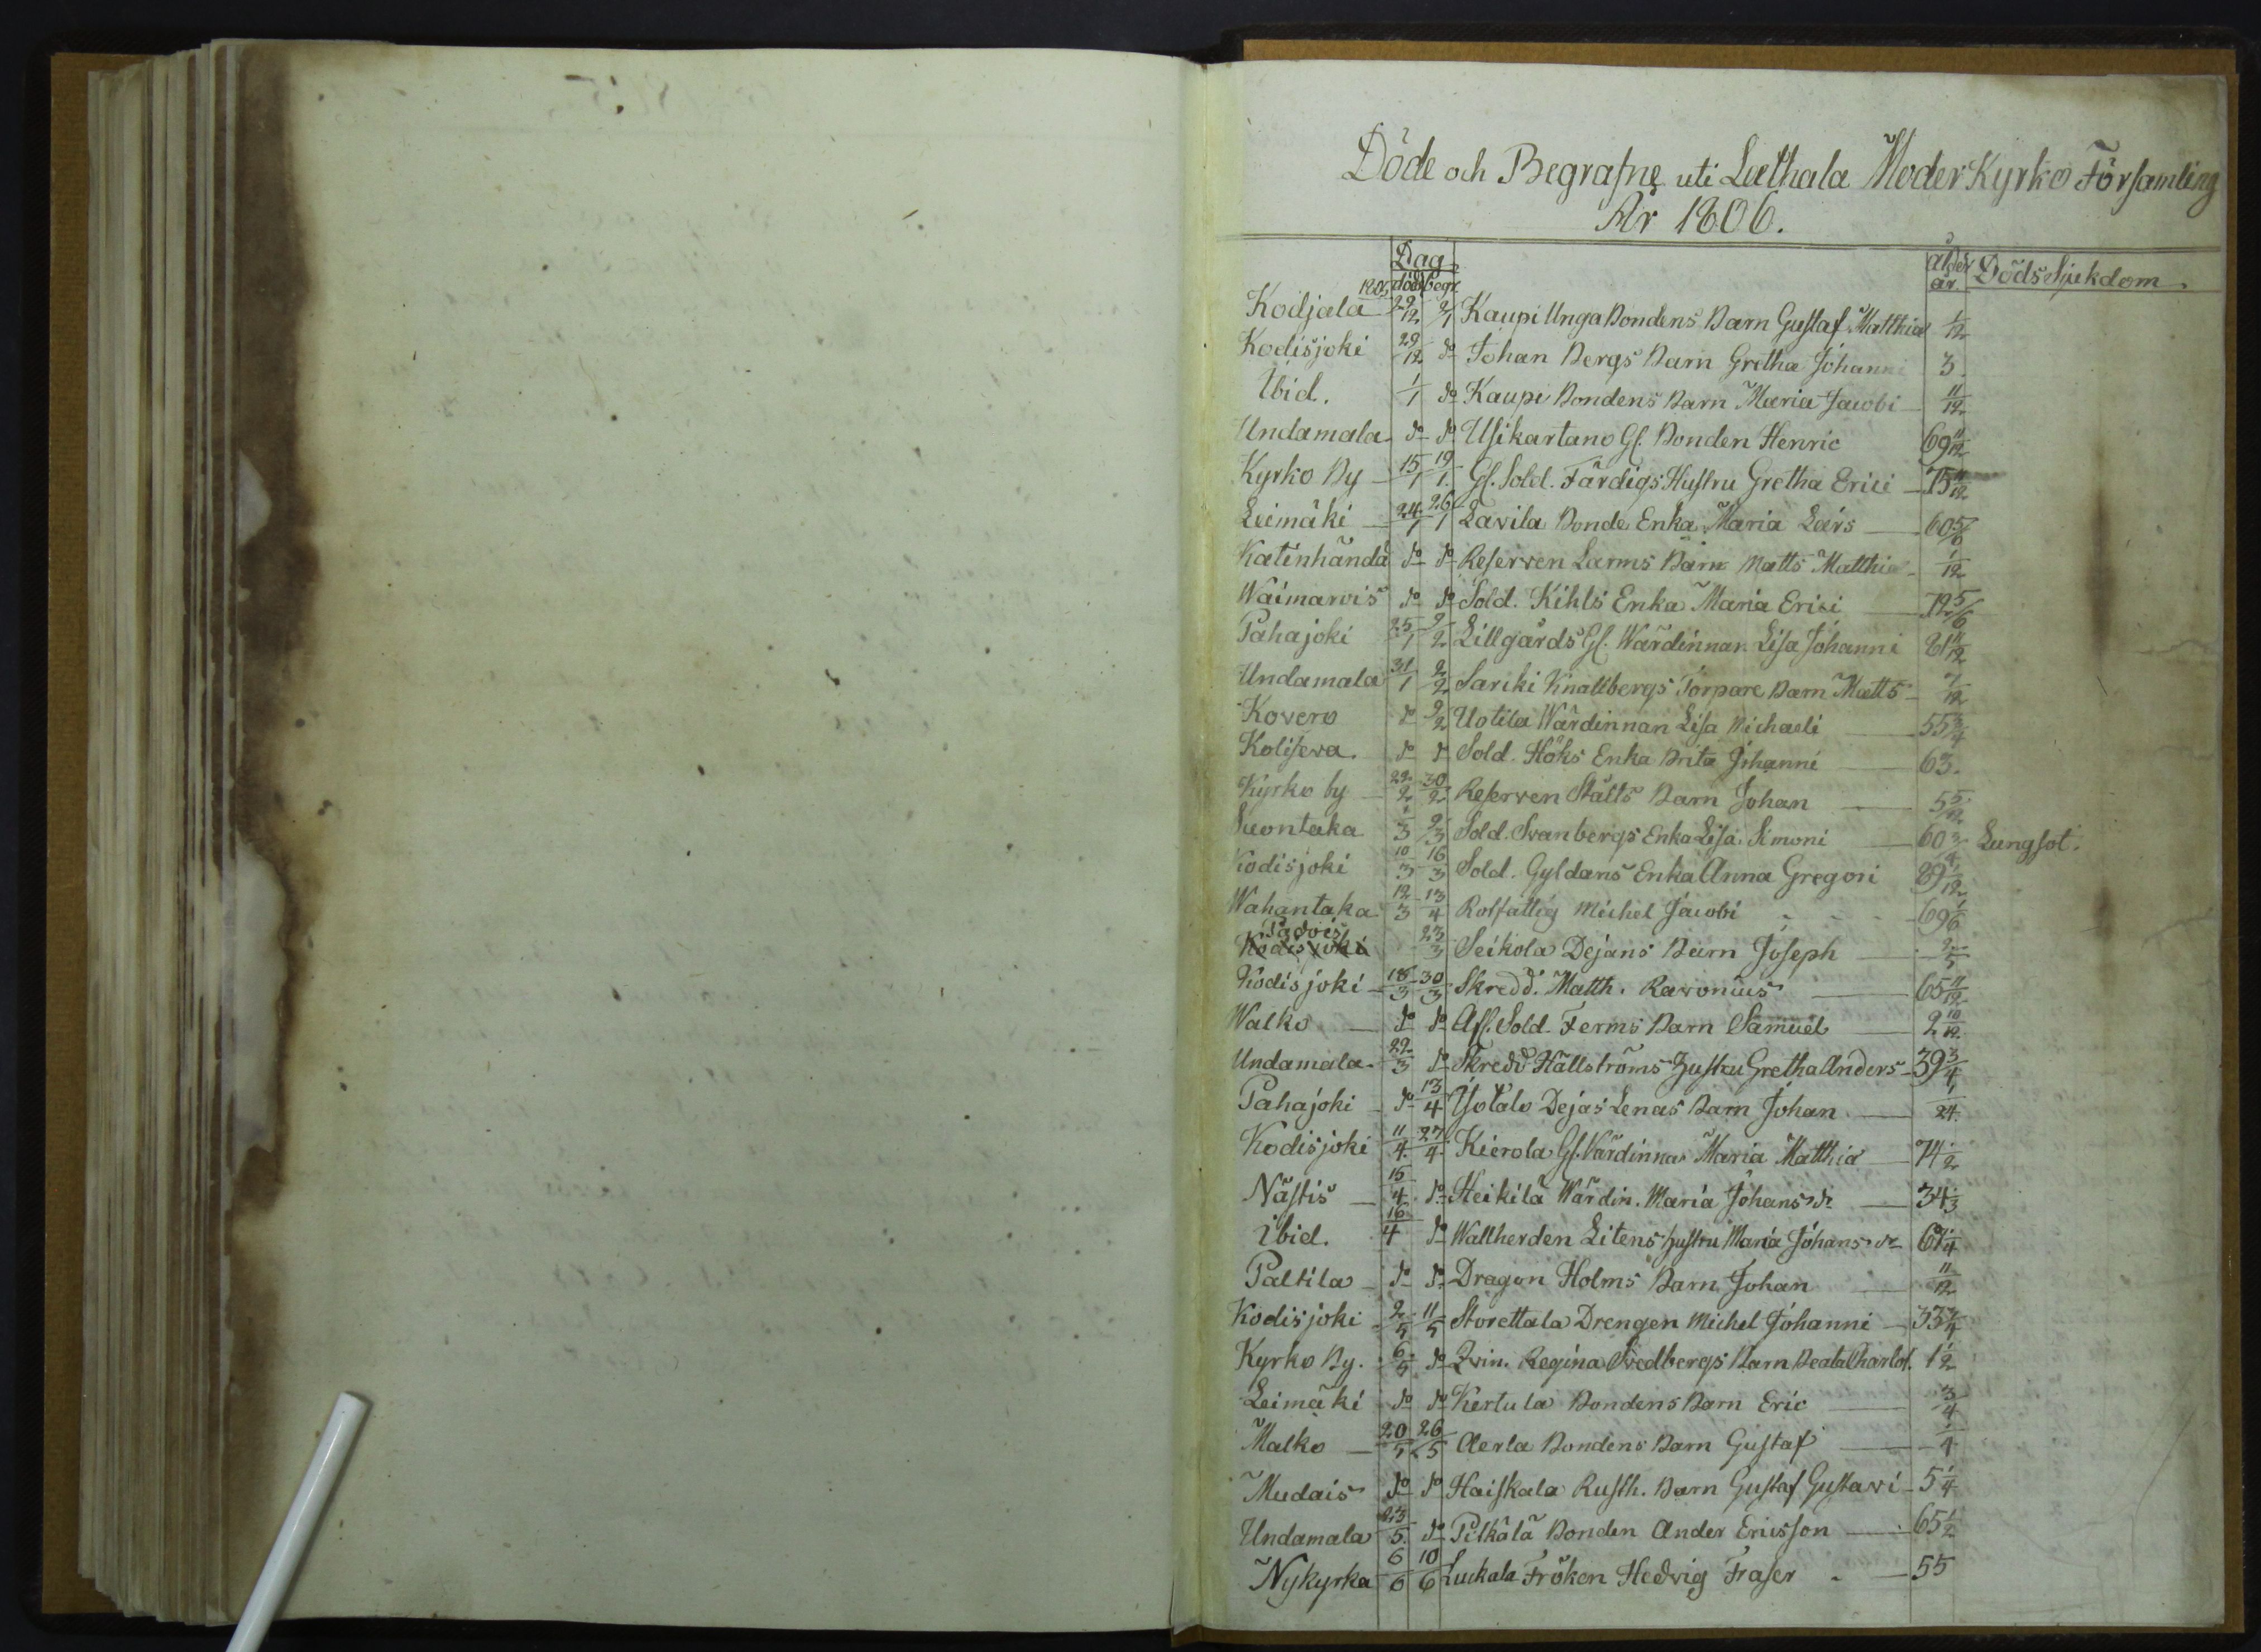 Döde och Begrafne uti Laethala Moder Kyrko Församling
År 1806.
Dag ålder DödsSjukdom.
1805 död begr. år.
Kodjala 22/12 2/1 Kaupi Unga Bondens Barn Gustaf Matthiæ 1/12
Kodisjoki 29/12 do Johan Bergs Barn Gretha Johanni 3.
Ibid. 1/1 do Kaupi Bondens Barn Maria Jacobi 11/12
Undamala do do Usikartano Gl. Bonden Henric 69 11/12
Kyrko By 15/1 19/1. Gl. Sold. Färdigs Hustru Gretha Erici 75 11/12
Leimäki 24/1 26/1 Lavila Bonde Enka Maria Lars 60 5/6
Katinhändä do do Reserven Larms Barn Matts Matthiæ 1/12
Waimarois do do Sold. Kihls Enka Maria Erici 72 5/6
Pahajoki 25/1 2/2 Lillgårds Gl. Wärdinnan Lisa Johanni 81 11/12
Undamala 31/1 2/2 Sariki Knallbergs Torpare Barn Matts 7/12
Kovero do 9/2 Uotila Wärdinnan Lisa Michaeli 55 3/4
Koliseva do do Sold. Höks Enka Brita Johanni 63.
Kyrko by 22/2 30/2 Reserven Stålts Barn Johan 5 5/12
Suontaka 1/3 9/3 Sold. Svanbergs Enka Lisa Simoni 60 3/4 Lungsot.
Kodisjoki 10/3 16/3 Sold. Gyldans Enka Anna Gregori 89 1/12
Wahantaka 12/3 13/4 Rotfattig Michel Jacobi 69 1/6
Padois
Kodisjoki 23/3 Seikola Dejans Barn Joseph 2/5
Kodisjoki 18/3 30/3 Skredd. Matth. Ravonius 65 11/12
Walko do do Afl. Sold. Ferms Barn Samuel 2 10/12
Undamala 22/3 do Skredd Hällströms Hustru Gretha Anders 39 3/4
Pahajoki do 13/4 Yotalo Dejas Lenas Barn Johan 1/24.
Kodisjoki 11/4. 27/4 Kierola Gl. Värdinna Maria Matthiæ 74 1/2
Nästis 15/4 do Heikilä Wärdin. Maria Johans dr 34 1/3
Ibid. 16/4 do Wallherden Litens Hustru Maria Johans dr 67 1/4
Paltila do do Dragon Holms Barn Johan 11/12
Kodisjoki 2/5 11/5 Storettala Drengen Michel Johanni 33 3/4
Kyrko By. 6/5 do Qvin. Regina Svedbergs Barn Beata Charlot. 1 1/2
Leimäki do do Kertula Bondens Barn Eric 3/4
Malko 20/5 26/5 Aerla Bondens Barn Gustaf 1/4
Mudais do do Haiskala Rusth. Barn Gustaf Gustavi 5 1/4
Undamala 23/5. do Pitkälä Bonden Ander Ericsson 65 1/2
Nykyrka 6/6 10/6 Luukala Fröken Hedvig Fraser 55